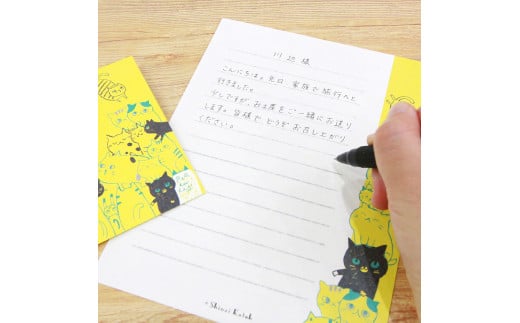 川辺様
こんにちは。先日、家族で旅行へと
行きました。
少しですが、お土産をご一緒にお送り
します。皆様で どうぞ お召し上がり
ください。
© Shinzi Katoh